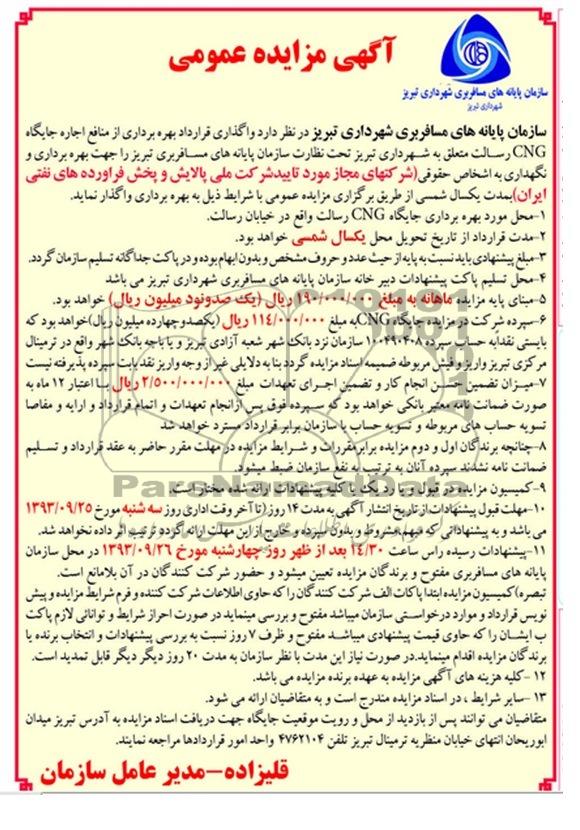 سازمان پایانه های مسافربری شهرداری تبریز
شهرداری تبریز
آگهی مزایده عمومی
سازمان پایانه های مسافربری شهرداری تبریز در نظر دارد واگذاری قرارداد بهره برداری از منافع اجاره جایگاه
CNG رسالت متعلق به شهرداری تبریز تحت نظارت سازمان پایانه های مسافربری تبریز را جهت بهره برداری و
نگهداری به اشخاص حقوقی(شرکتهای مجاز مورد تاییدشرکت ملی پالایش و پخش فراورده های نفتی
ایران)بمدت یکسال شمسی از طریق برگزاری مزایده عمومی با شرایط ذیل به بهره برداری واگذار نماید.
۱-محل مورد بهره برداری جایگاه CNG رسالت واقع در خیابان رسالت.
۲-مدت قرارداد از تاریخ تحویل محل یکسال شمسی خواهد بود.
۳-مبلغ پیشنهادی باید نسبت به پایه از حیث عدد و حروف مشخص و بدون ابهام بوده و در پاکت جداگانه تسلیم سازمان گردد.
۴-محل تسلیم پاکت پیشنهادات دبیر خانه سازمان پایانه های مسافربری شهرداری تبریز می باشد
۵-مبنای پایه مزایده ماهانه به مبلغ ۱۹۰/۰۰۰/۰۰۰ ریال (یک صدونود میلیون ریال) خواهد بود.
۶-سپرده شرکت در مزایده جایگاه CNGبه مبلغ ۱۱۴/۰۰۰/۰۰۰ ریال (یکصدوچهارده میلیون ریال)خواهد بود که
بایستی نقدابه حساب سپرده ۱۰۰۴۹۰۴۰۸ سازمان نزد بانک شهر شعبه آزادی تبریز و یا باجه بانک شهر واقع در ترمینال
مرکزی تبریز واریز و فیش مربوطه ضمیمه اسناد مزایده گردد بنا به دلایلی غیر از وجه واریز نقد بابت سپرده پذیرفته نیست
۷-میزان تضمین حسن انجام کار و تضمین اجرای تعهدات مبلغ ۲/۵۰۰/۰۰۰/۰۰۰ ریال با اعتبار ۱۲ ماه به
صورت ضمانت نامه معتبر بانکی خواهد بود که سپرده فوق پس ازانجام تعهدات و اتمام قرارداد و ارایه و مفاصا
تسویه حساب های مربوطه و تسویه حساب با سازمان برابر قرارداد مسترد خواهد شد
۸-چنانچه برندگان اول و دوم مزایده برابرمقررات و شرایط مزایده در مهلت مقرر حاضر به عقد قرارداد و تسلیم
ضمانت نامه نشدند سپرده آنان به ترتیب به نفع سازمان ضبط میشود.
۹-کمیسیون مزایده در قبول و یا رد یک یا کلیه پیشنهادات ارائه شده مختار است.
۱۰-مهلت قبول پیشنهادات از تاریخ انتشار آگهی به مدت ۱۴ روز (تا آخر وقت اداری روز سه شنبه مورخ ۱۳۹۳/۰۹/۲۵
می باشد و به پیشنهاداتی که مبهم مشروط و بدون سپرده و خارج از این مهلت ارائه گردد ترتیب اثر داده نخواهد شد.
۱۱-پیشنهادات رسیده راس ساعت ۱۴/۳۰ بعد از ظهر روز چهارشنبه مورخ ۱۳۹۳/۰۹/۲۶ در محل سازمان
پایانه های مسافربری مفتوح و برندگان مزایده تعیین میشود و حضور شرکت کنندگان در آن بلامانع است.
تبصره)کمیسیون مزایده ابتدا پاکات الف شرکت کنندگان را که حاوی اطلاعات شرکت کننده و فرم شرایط مزایده و پیش
نویس قرارداد و موارد درخواستی سازمان میباشد مفتوح و بررسی مینماید در صورت احراز شرایط و توانائی لازم پاکت
ب ایشان را که حاوی قیمت پیشنهادی میباشد مفتوح و ظرف ۷ روز نسبت به بررسی پیشنهادات و انتخاب برنده یا
برندگان مزایده اقدام مینماید.در صورت نیاز این مدت با نظر سازمان به مدت ۲۰ روز دیگر دیگر قابل تمدید است.
۱۲ -کلیه هزینه های آگهی مزایده به عهده برنده مزایده می باشد.
۱۳ -سایر شرایط ، در اسناد مزایده مندرج است و به متقاضیان ارائه می شود.
متقاضیان می توانند پس از بازدید از محل و رویت موقعیت جایگاه جهت دریافت اسناد مزایده به آدرس تبریز میدان
ابوریحان انتهای خیابان منظریه ترمینال تبریز تلفن ۴۷۶۲۱۰۴ واحد امور قراردادها مراجعه نمایند.
قلیزاده-مدیر عامل سازمان
ParsNamadData